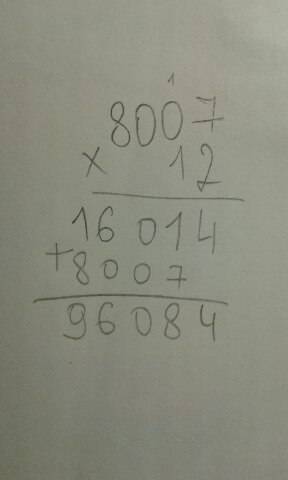 1
8007
× 12
16014
+8007
96084